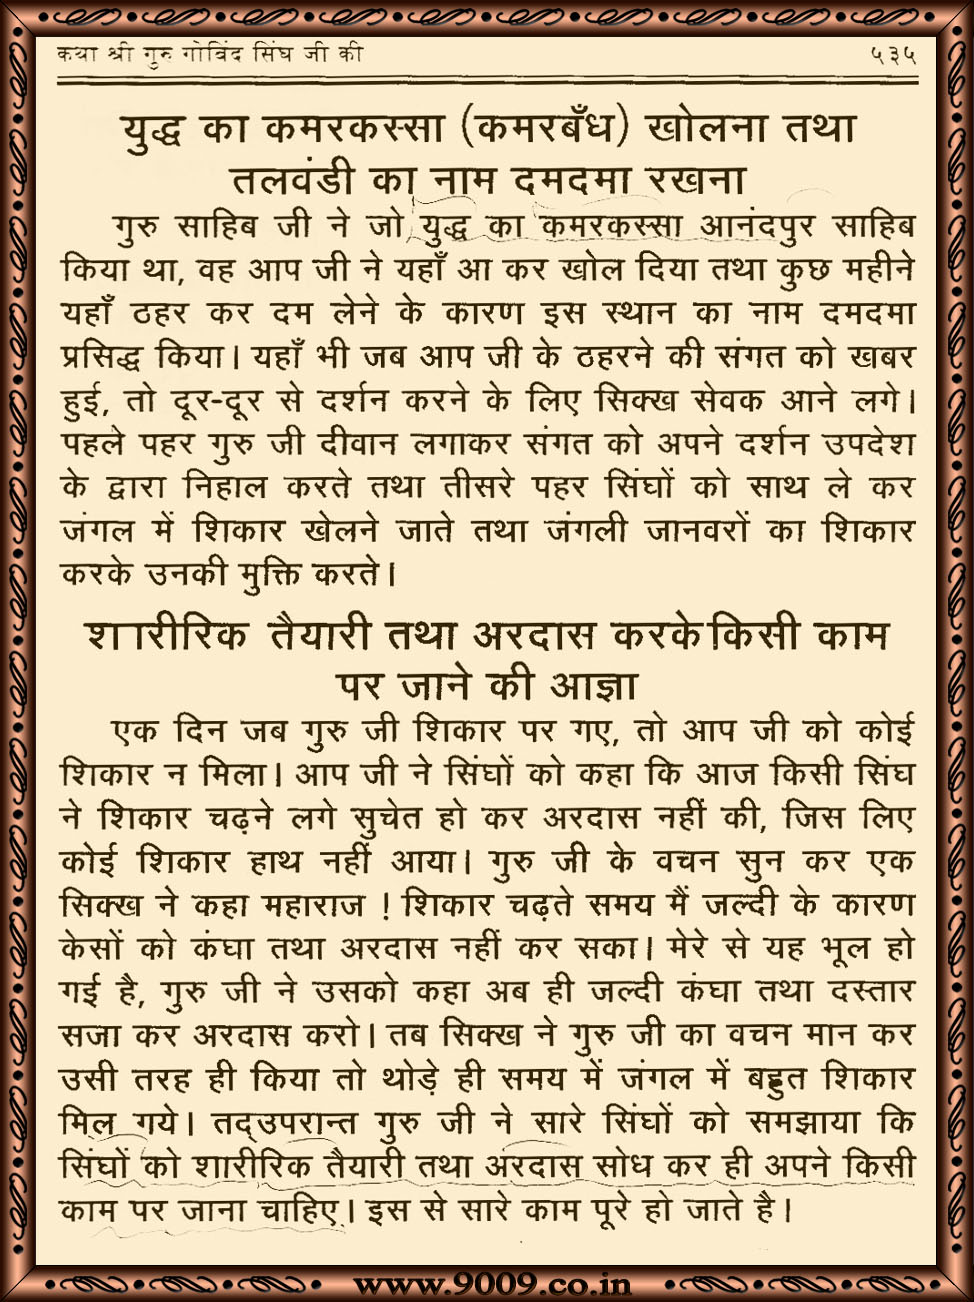 कथा श्री गुरु गोविंद सिंघ जी की ५३५
युद्ध का कमरकस्सा (कमरबँध) खोलना तथा
तलवंडी का नाम दमदमा रखना
गुरु साहिब जी ने जो युद्ध का कमरकस्सा आनंदपुर साहिब
किया था, वह आप जी ने यहाँ आ कर खोल दिया तथा कुछ महीने
यहाँ ठहर कर दम लेने के कारण इस स्थान का नाम दमदमा
प्रसिद्ध किया। यहाँ भी जब आप जी के ठहरने की संगत को खबर
हुई, तो दूर-दूर से दर्शन करने के लिए सिक्ख सेवक आने लगे।
पहले पहर गुरु जी दीवान लगाकर संगत को अपने दर्शन उपदेश
के द्वारा निहाल करते तथा तीसरे पहर सिंघों को साथ ले कर
जंगल में शिकार खेलने जाते तथा जंगली जानवरों का शिकार
करके उनकी मुक्ति करते।
शारीरिक तैयारी तथा अरदास करके किसी काम
पर जाने की आज्ञा
एक दिन जब गुरु जी शिकार पर गए, तो आप जी को कोई
शिकार न मिला। आप जी ने सिंघों को कहा कि आज किसी सिंघ
ने शिकार चढ़ने लगे सुचेत हो कर अरदास नहीं की, जिस लिए
कोई शिकार हाथ नहीं आया। गुरु जी के वचन सुन कर एक
सिक्ख ने कहा महाराज ! शिकार चढ़ते समय मैं जल्दी के कारण
केसों को कंघा तथा अरदास नहीं कर सका। मेरे से यह भूल हो
गई है, गुरु जी ने उसको कहा अब ही जल्दी कंघा तथा दस्तार
सजा कर अरदास करो। तब सिक्ख ने गुरु जी का वचन मान कर
उसी तरह ही किया तो थोड़े ही समय में जंगल में बहुत शिकार
मिल गये। तद्उपरान्त गुरु जी ने सारे सिंघों को समझाया कि
सिंघों को शारीरिक तैयारी तथा अरदास सोध कर ही अपने किसी
काम पर जाना चाहिए। इस से सारे काम पूरे हो जाते है।
www.9009.co.in